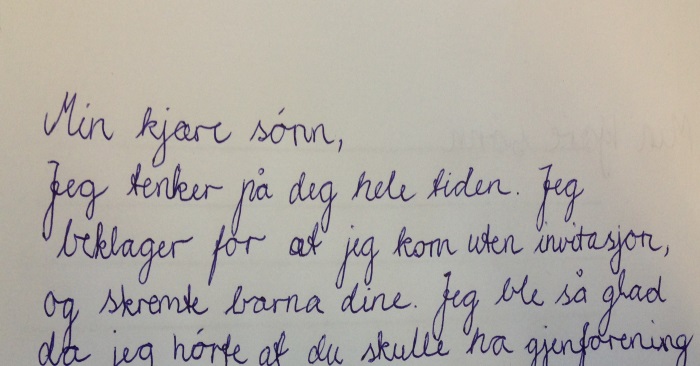 Min kjære sønn,
Jeg tenker på deg hele tiden. Jeg
beklager for at jeg kom uten invitasjon,
og skremte barna dine. Jeg ble så glad
da jeg hørte at du skulle ha gjenforening